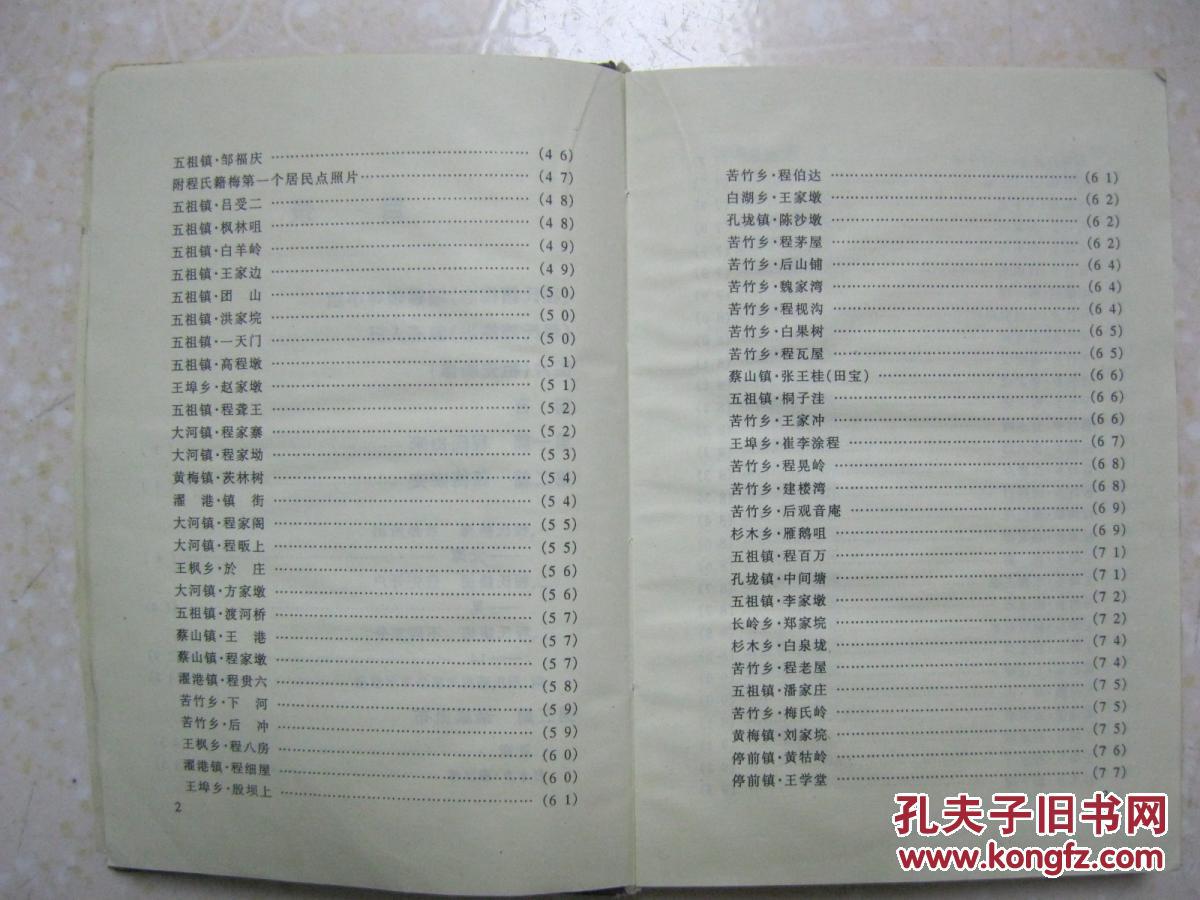 五祖镇·邹福庆 ……………………………… (46)
附程氏籍梅第一个居民点照片 ……………………………… (47)
五祖镇·吕受二 ……………………………… (48)
五祖镇·枫林咀 ……………………………… (48)
五祖镇·白羊岭 ……………………………… (49)
五祖镇·王家边 ……………………………… (49)
五祖镇·团　山 ……………………………… (50)
五祖镇·洪家垸 ……………………………… (50)
五祖镇·一天门 ……………………………… (50)
五祖镇·高程墩 ……………………………… (51)
王埠乡·赵家墩 ……………………………… (51)
五祖镇·程聋王 ……………………………… (52)
大河镇·程家寨 ……………………………… (52)
大河镇·程家坳 ……………………………… (53)
黄梅镇·茨林树 ……………………………… (54)
濯　港·镇　街 ……………………………… (54)
大河镇·程家阁 ……………………………… (55)
大河镇·程畈上 ……………………………… (55)
王枫乡·於　庄 ……………………………… (56)
大河镇·方家墩 ……………………………… (56)
五祖镇·渡河桥 ……………………………… (57)
蔡山镇·王　港 ……………………………… (57)
蔡山镇·程家墩 ……………………………… (57)
濯港镇·程贵六 ……………………………… (58)
苦竹乡·下　河 ……………………………… (59)
苦竹乡·后　冲 ……………………………… (59)
王枫乡·程八房 ……………………………… (60)
濯港镇·程细屋 ……………………………… (60)
王埠乡·殷坝上 ……………………………… (61)
2
苦竹乡·程伯达 ……………………………… (61)
白湖乡·王家墩 ……………………………… (62)
孔垅镇·陈沙墩 ……………………………… (62)
苦竹乡·程茅屋 ……………………………… (62)
苦竹乡·后山铺 ……………………………… (64)
苦竹乡·魏家湾 ……………………………… (64)
苦竹乡·程视沟 ……………………………… (64)
苦竹乡·白果树 ……………………………… (65)
苦竹乡·程瓦屋 ……………………………… (65)
蔡山镇·张王桂(田宝) ……………………………… (66)
五祖镇·桐子洼 ……………………………… (66)
苦竹乡·王家冲 ……………………………… (66)
王埠乡·崔李涂程 ……………………………… (67)
苦竹乡·程晃岭 ……………………………… (68)
苦竹乡·建楼湾 ……………………………… (68)
苦竹乡·后观音庵 ……………………………… (69)
杉木乡·雁鹅咀 ……………………………… (69)
五祖镇·程百万 ……………………………… (71)
孔垅镇·中间塘 ……………………………… (71)
五祖镇·李家墩 ……………………………… (72)
长岭乡·郑家垸 ……………………………… (72)
杉木乡·白泉垅 ……………………………… (74)
苦竹乡·程老屋 ……………………………… (74)
五祖镇·潘家庄 ……………………………… (75)
苦竹乡·梅氏岭 ……………………………… (75)
黄梅镇·刘家垸 ……………………………… (75)
停前镇·黄牯岭 ……………………………… (76)
停前镇·王学堂 ……………………………… (77)
孔夫子旧书网
www.kongfz.com